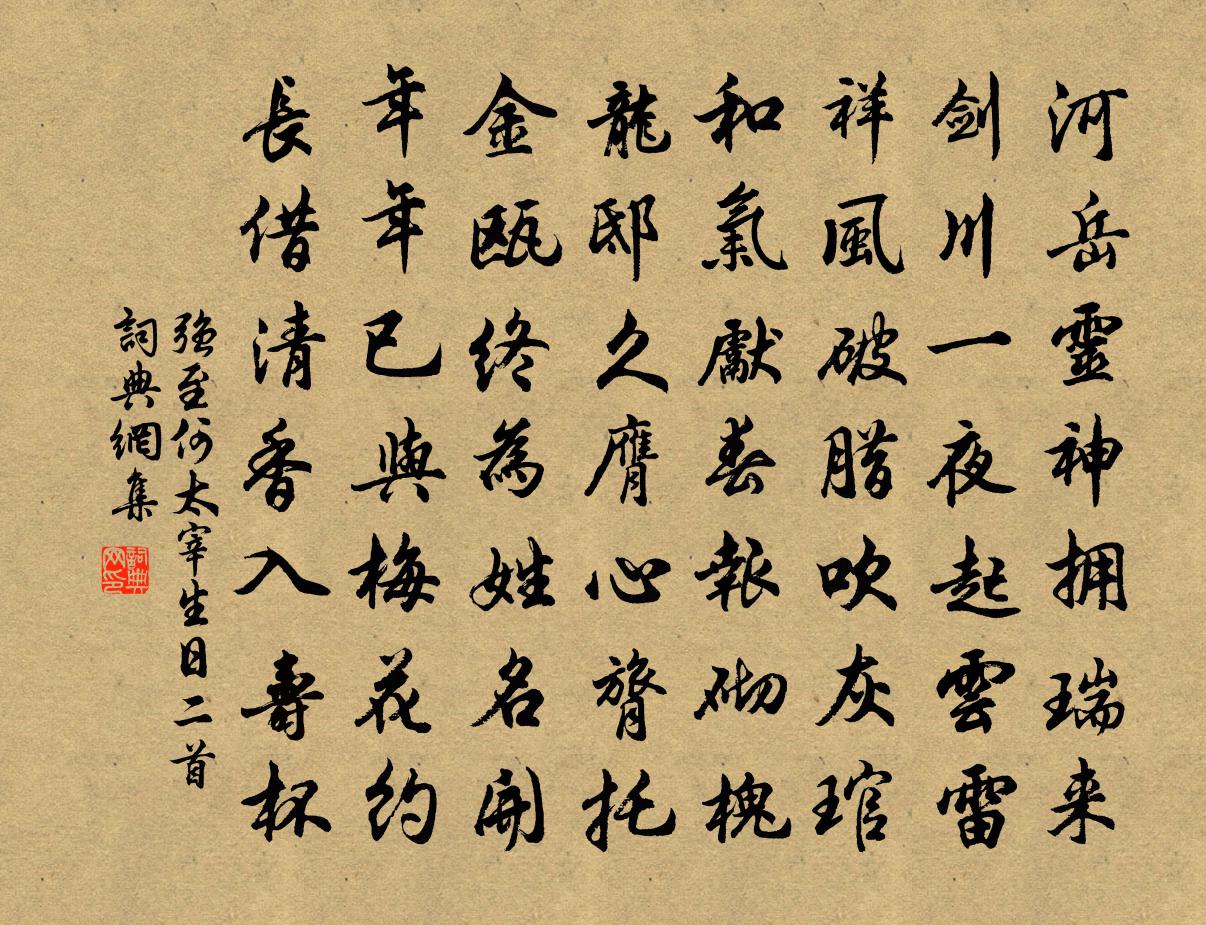 河岳靈神拥瑞来
剑川一夜起雲雷
祥風破腊吹灰琯
和氣獻春報砌槐
龍邸久膺心膂托
金甌终為姓名開
年年已與梅花约
長借清香入壽杯
強至何太宰生日二首
詞典網集
詞典网印